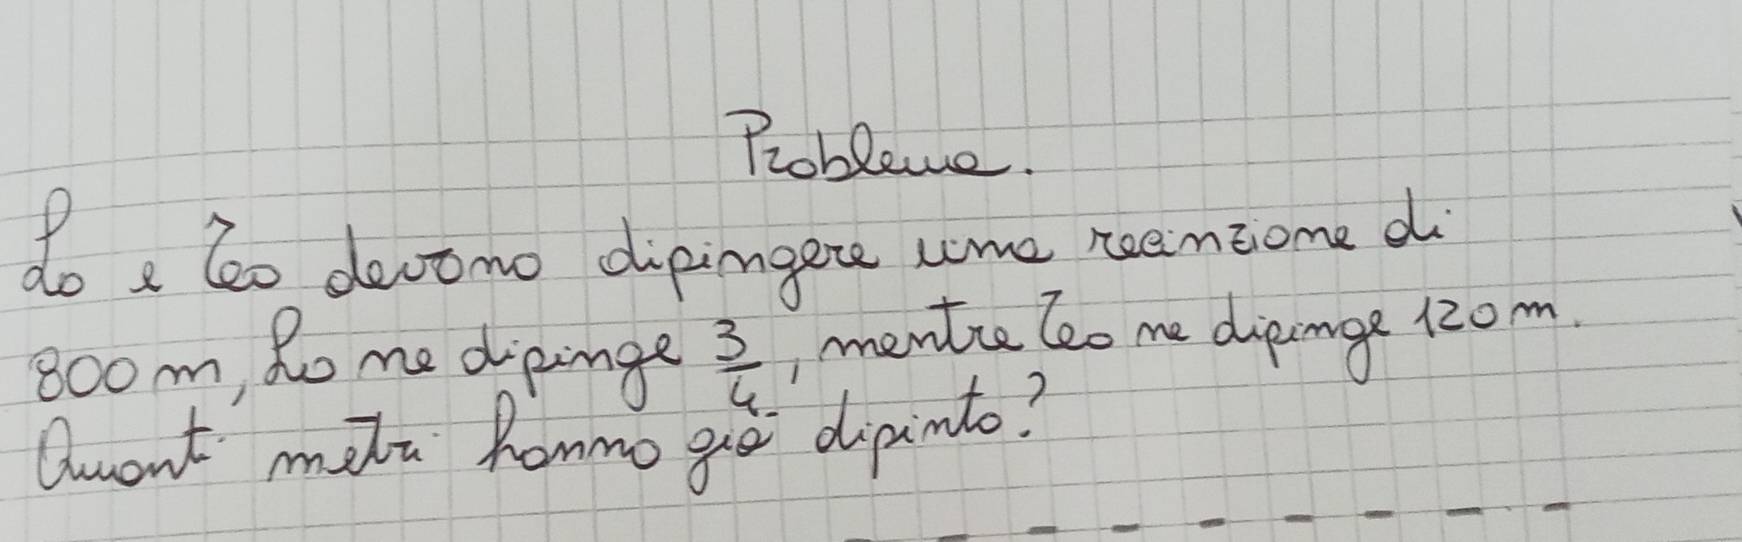 Problema.
Lo e Leo devono dipingere una recinzione di
800 m, Lo ne dipinge 3/4, mentre Leo ne dipinge 120 m.
Quanti metri hanno già dipinto?